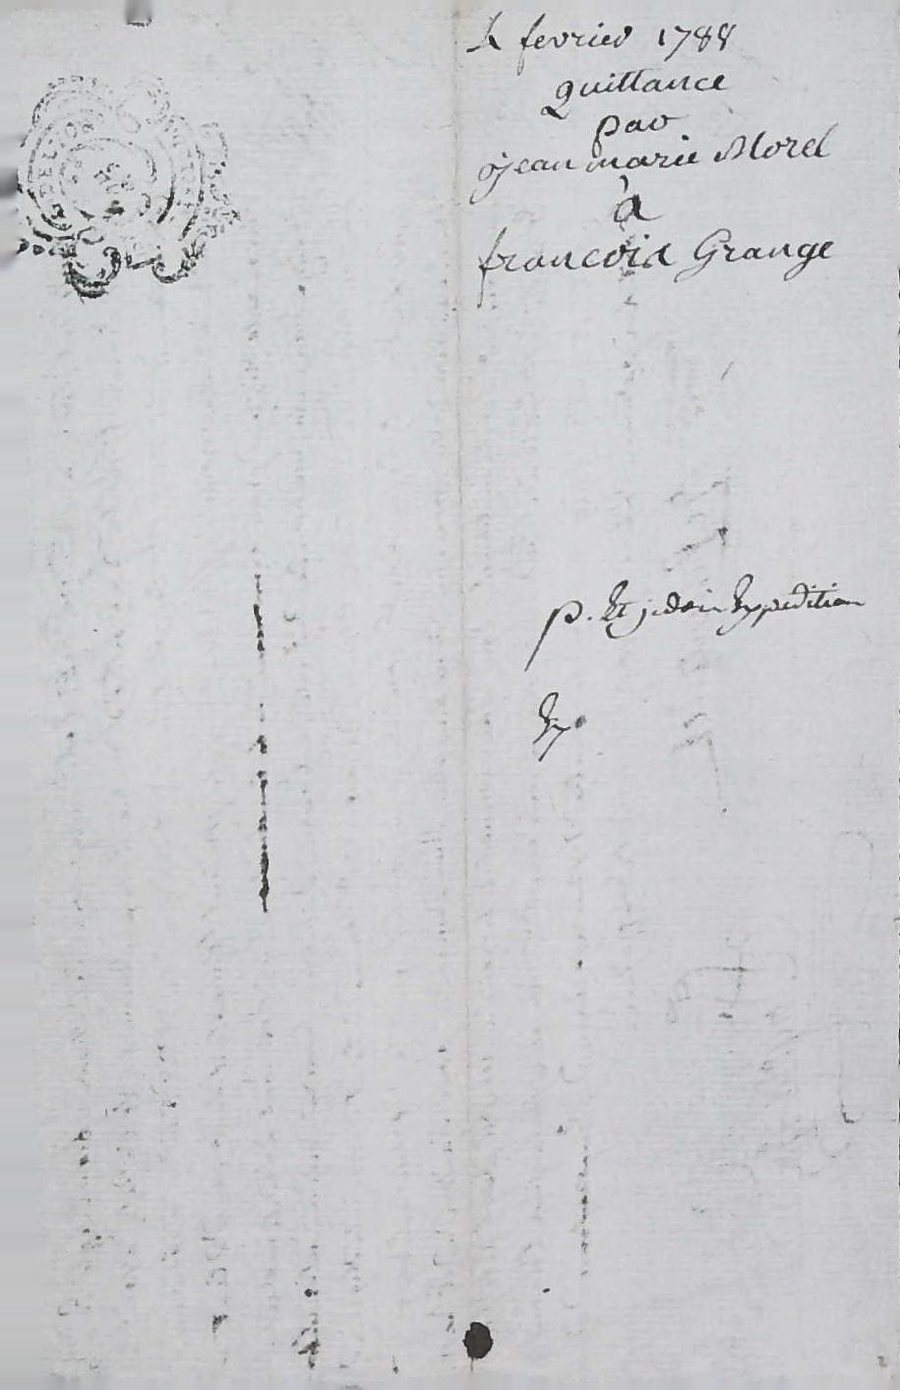 4 fevrier 1788
quittance
par
jean marie Morel
à
francois Grange
p. Et j. doin Expedition
Ex